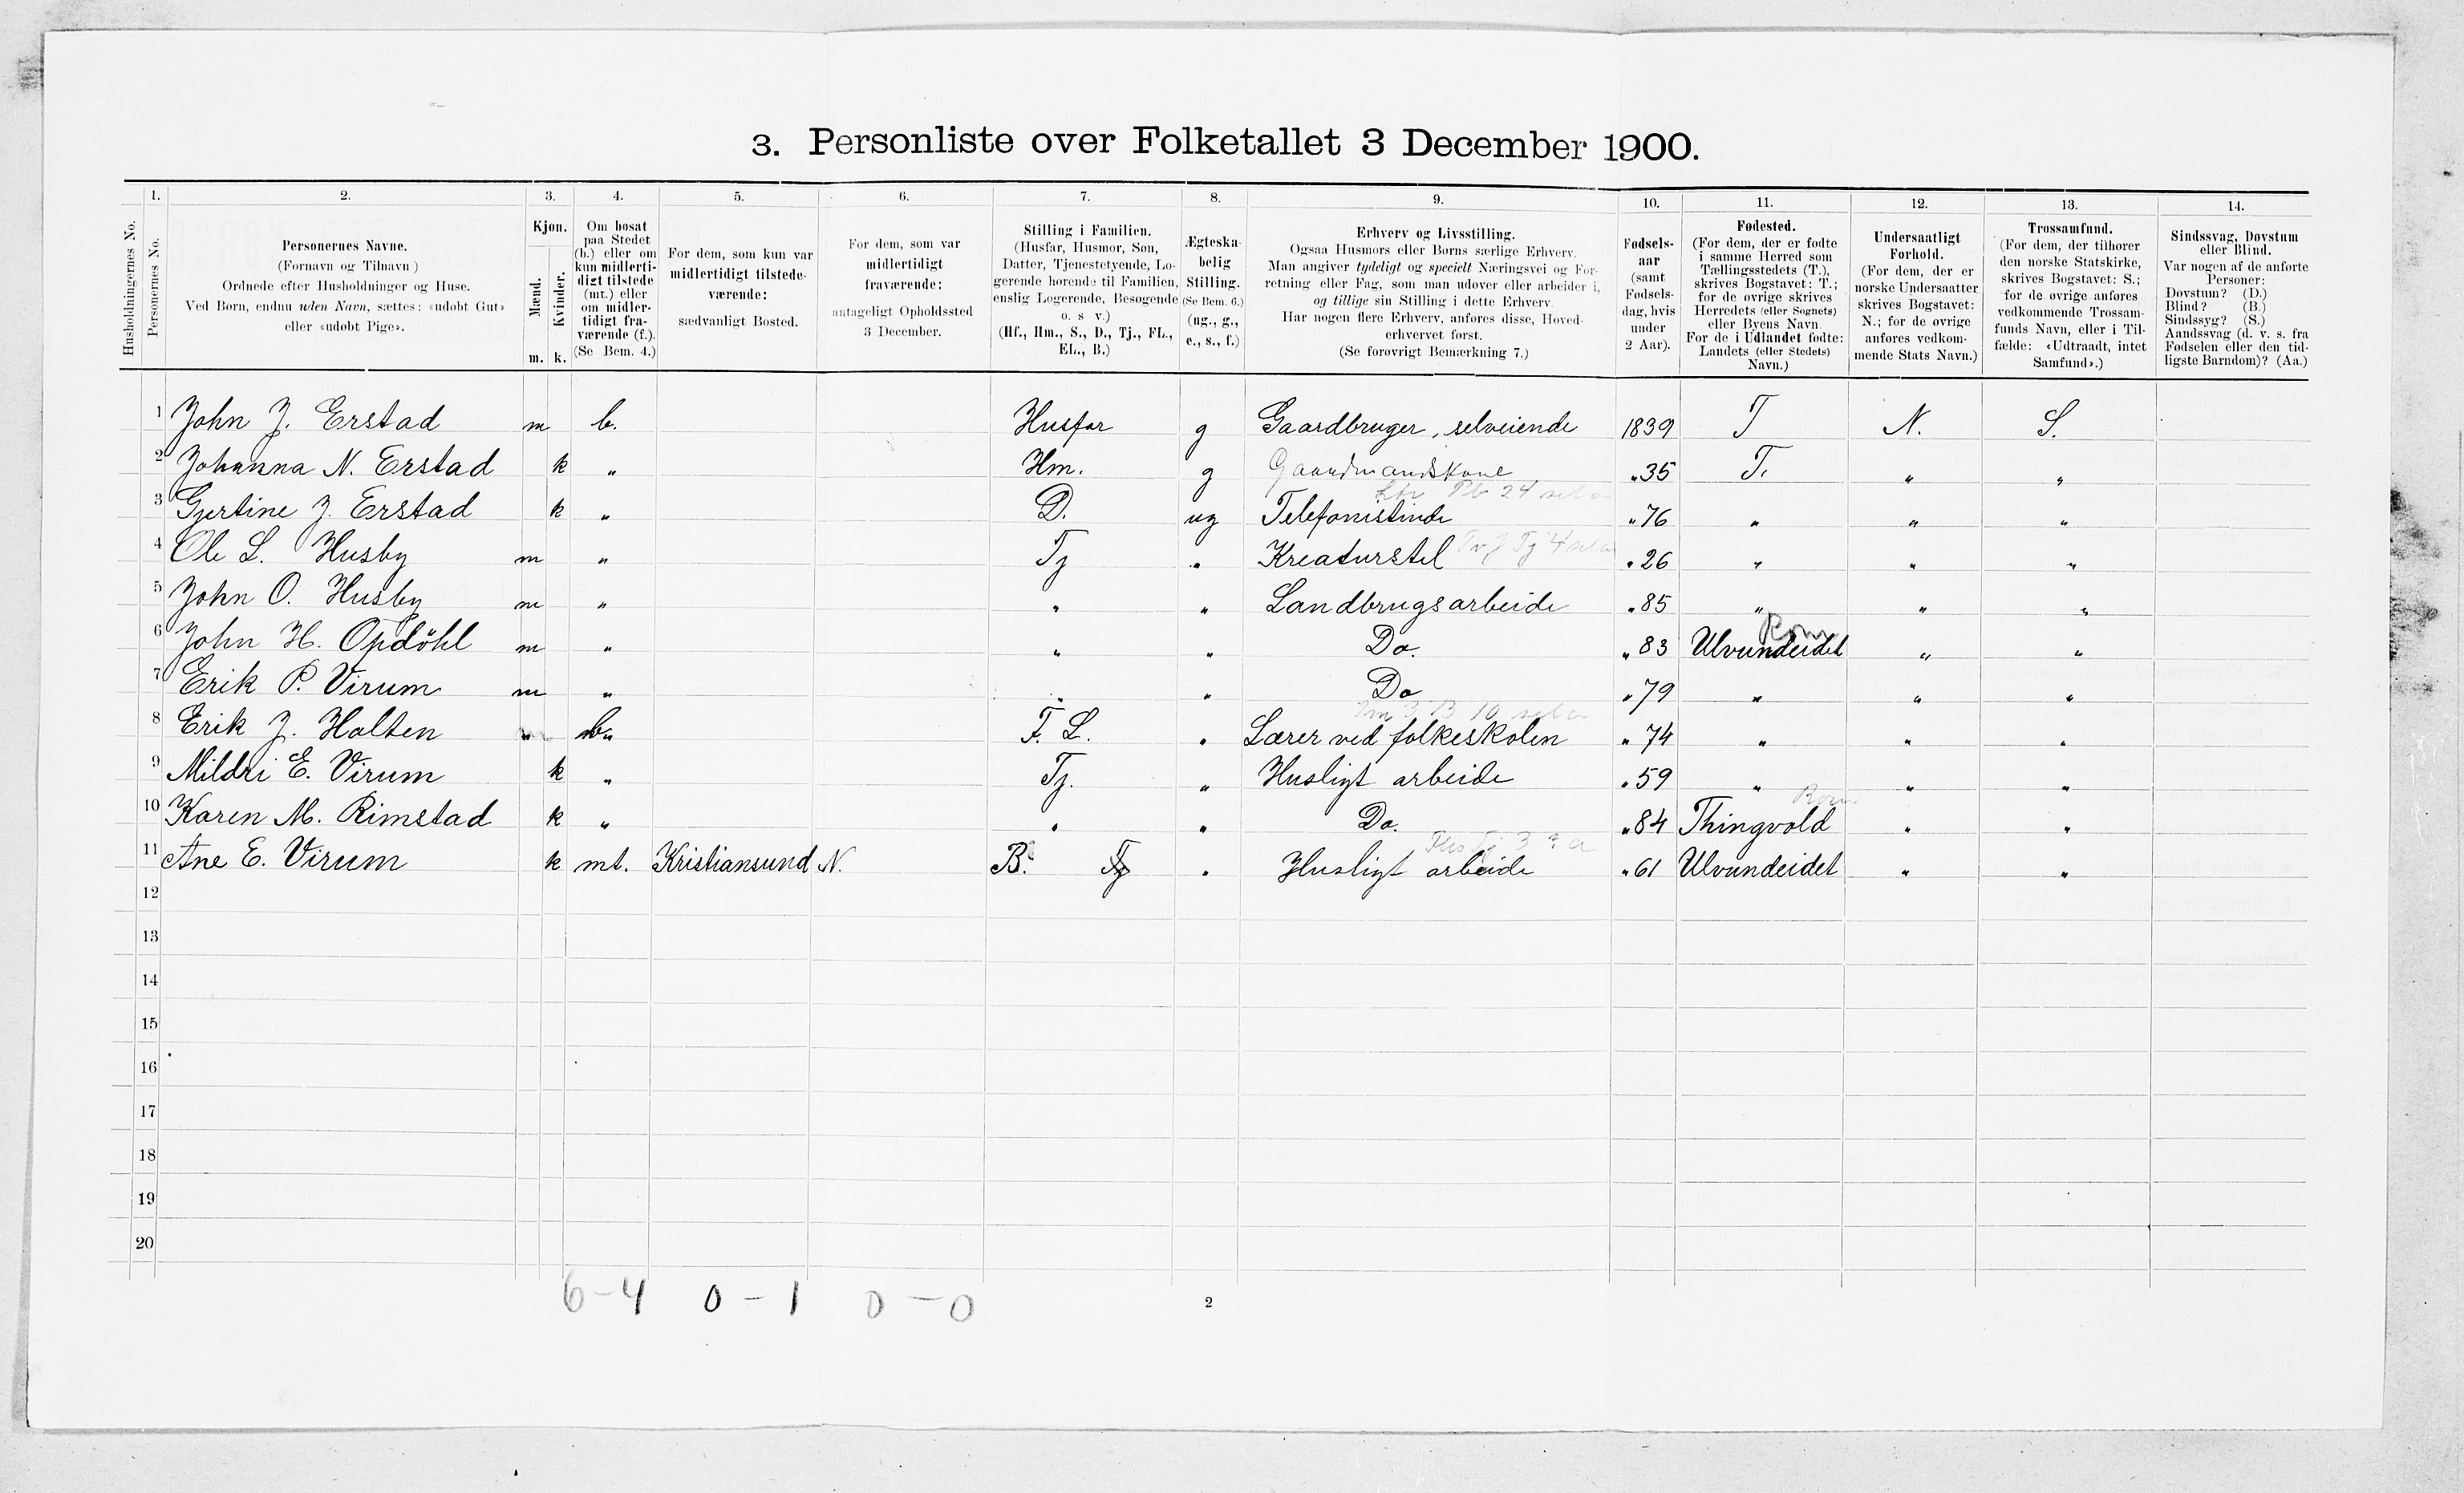 3. Personliste over Folketallet 3 December 1900.
Husholdningernes No.
1. Personernes No.
2. Personernes Navne.
(Fornavn og Tilnavn)
Ordnede efter Husholdninger og Huse.
Ved Børn, endnu uden Navn, sættes: «udøbt Gut»
eller «udøbt Pige».
3. Kjøn.
Mænd. Kvinder.
m. k.
4. Om bosat
paa Stedet
(b.) eller om
kun midlerti-
digt tilstede
(mt.) eller
om midler-
tidigt fra-
værende (f.).
(Se Bem. 4.)
5. For dem, som kun var
midlertidigt tilstede-
værende:
sædvanligt Bosted.
6. For dem, som var
midlertidigt
fraværende:
antageligt Opholdssted
3 December.
7. Stilling i Familien.
(Husfar, Husmor, Søn,
Datter, Tjenestetyende, Lo-
gerende hørende til Familien,
enslig Logerende, Besøgende
o. s v.)
(Hf., Hm., S., D., Tj., FL.,
EL., B.)
8. Ægteska-
belig
Stilling.
(Se Bem. 6.)
(ug., g.,
e., s., f.)
9. Erhverv og Livsstilling.
Ogsaa Husmors eller Børns særlige Erhverv.
Man angiver tydeligt og specielt Næringsvei og For-
retning eller Fag, som man udøver eller arbeider i,
og tillige sin Stilling i dette Erhverv.
Har nogen flere Erhverv, anføres disse, Hoved-
erhvervet først.
(Se forøvrigt Bemærkning 7.)
10. Fødsels-
aar
(samt
Fødsels-
dag, hvis
under
2 Aar).
11. Fødested.
(For dem, der er fødte
i samme Herred som
Tællingsstedets (T.),
skrives Bogstavet: T.;
for de øvrige skrives
Herredets (eller Sognets)
eller Byens Navn.
For de i Udlandet fødte:
Landets (eller Stedets)
Navn.)
12. Undersaatligt
Forhold.
(For dem, der er
norske Undersaatter
skrives Bogstavet:
N.; for de øvrige
anføres vedkom-
mende Stats Navn.)
13. Trossamfund.
(For dem, der tilhører
den norske Statskirke,
skrives Bogstavet: S.;
for de øvrige anføres
vedkommende Trossam-
funds Navn, eller i Til-
fælde: «Udtraadt, intet
Samfund».)
14. Sindssvag, Døvstum
eller Blind.
Var nogen af de anførte
Personer:
Døvstum? (D.)
Blind? (B.)
Sindssyg? (S.)
Aandssvag (d. v. s. fra
Fødselen eller den tid-
ligste Barndom)? (Aa.)
1 John J. Erstad m b. Husfar g Gaardbruger, selveiende 1839 T N. S.
2 Johanna N. Erstad k " Hm. g Gaardmandskone "35 T. " "
3 Gjertine J. Erstad k " D. ug Telefonistinde "76 " " "
4 Ole L. Husby m " Tj " Kreaturstel "26 " " "
5 John O. Husby m " " " Landbrugsarbeide "85 " " "
6 John H. Opdöhl m " " " Do. "83 Ulvundeidet " "
7 Erik P. Virum m " " " Do "79 " " "
8 Erik J. Holten " b. F. L. " Lærer ved folkeskolen "74 " " "
9 Mildri E. Virum k " Tj. " Husligt arbeide "59 " " "
10 Karen M. Rimstad k " " " Do. "84 Thingvold " "
11 Ane E. Virum k mt. Kristiansund N. B. Tj " Husligt arbeide "61 Ulvundeidet " "
12
13
14
15
16
17
18
19
20
6-4 0-1 0-0
2